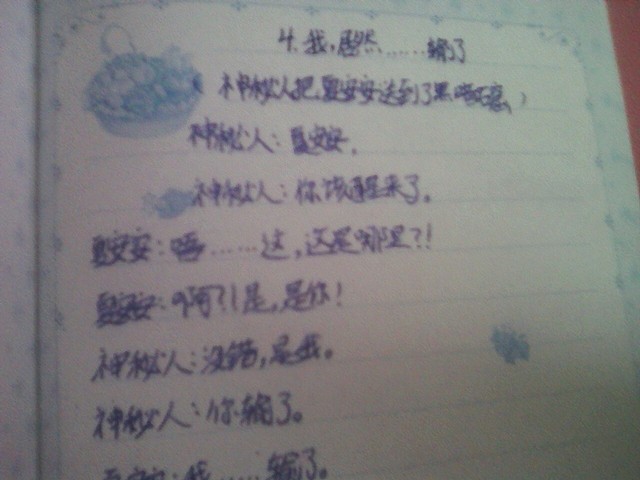 4.我,居然……输了
神秘人把夏安安送到了黑暗
神秘人:夏安安。
神秘人:你该醒来了。
夏安安:唔……这,这是哪里?!
夏安安:啊?!是,是你!
神秘人:没错,是我。
神秘人:你输了。
夏安安:我……输了。